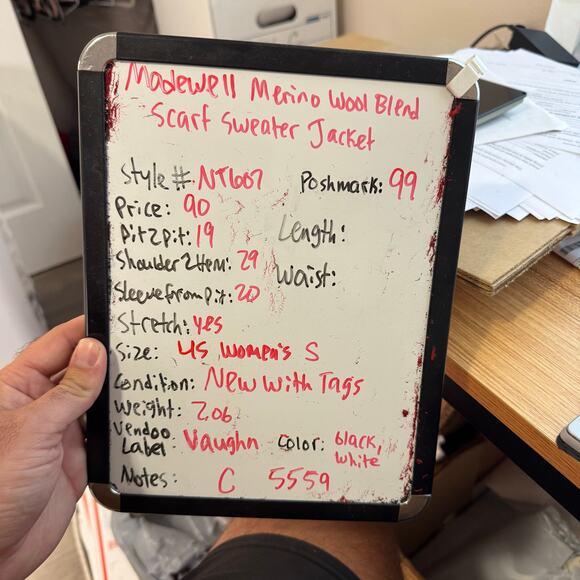 Madewell Merino Wool Blend
Scarf Sweater Jacket
Style #: NT607 Poshmark: 99
Price: 90
Pit2Pit: 19 Length:
Shoulder2Hem: 29 Waist:
Sleeve from pit: 20
Stretch: yes
Size: US Women's S
Condition: New With Tags
Weight: 2.06
Vendoo
Label: Vaughn Color: black,
white
Notes: C 5559